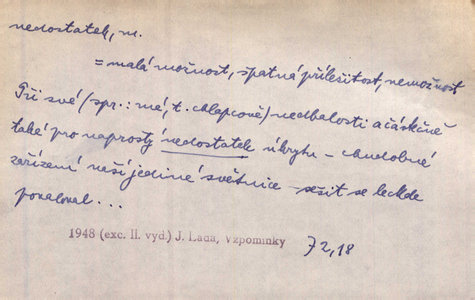 nedostatek, m.
= malá možnost, špatná příležitost, nemožnost
Při své (spr.: mé, t. chlapcově) nedbalosti a částečně
také pro naprostý nedostatek úkrytu – chudobné
zařízení naší jediné světnice – sešit se leckde
povaloval...
1948 (exc. II. vyd.) J. Lada, Vzpomínky
72,18